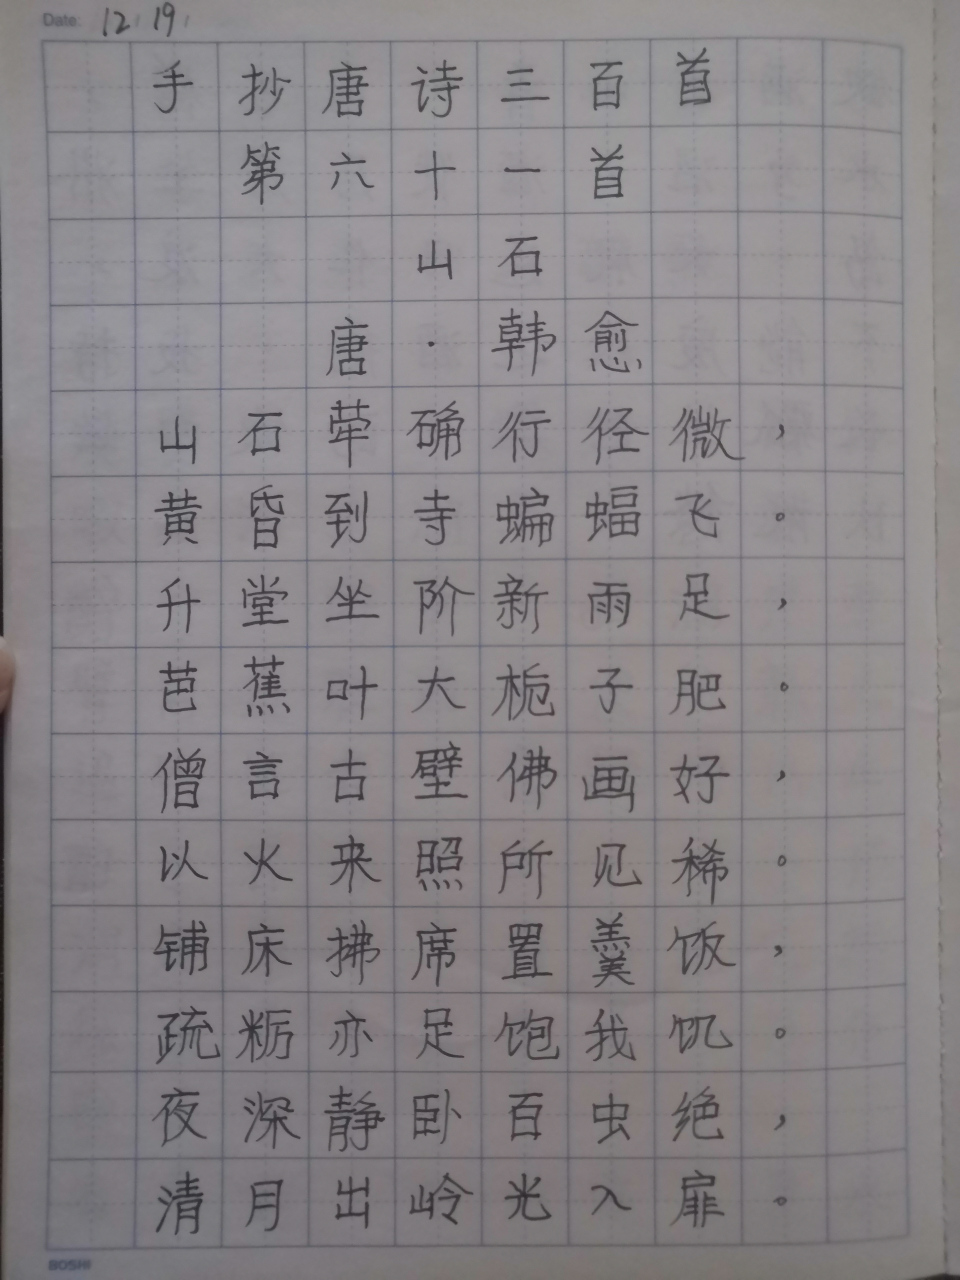 Date: 12 / 19 /
手抄唐诗三百首
第六十一首
山石
唐·韩愈
山石荦确行径微，
黄昏到寺蝙蝠飞。
升堂坐阶新雨足，
芭蕉叶大栀子肥。
僧言古壁佛画好，
以火来照所见稀。
铺床拂席置羹饭，
疏粝亦足饱我饥。
夜深静卧百虫绝，
清月出岭光入扉。
BOSHI